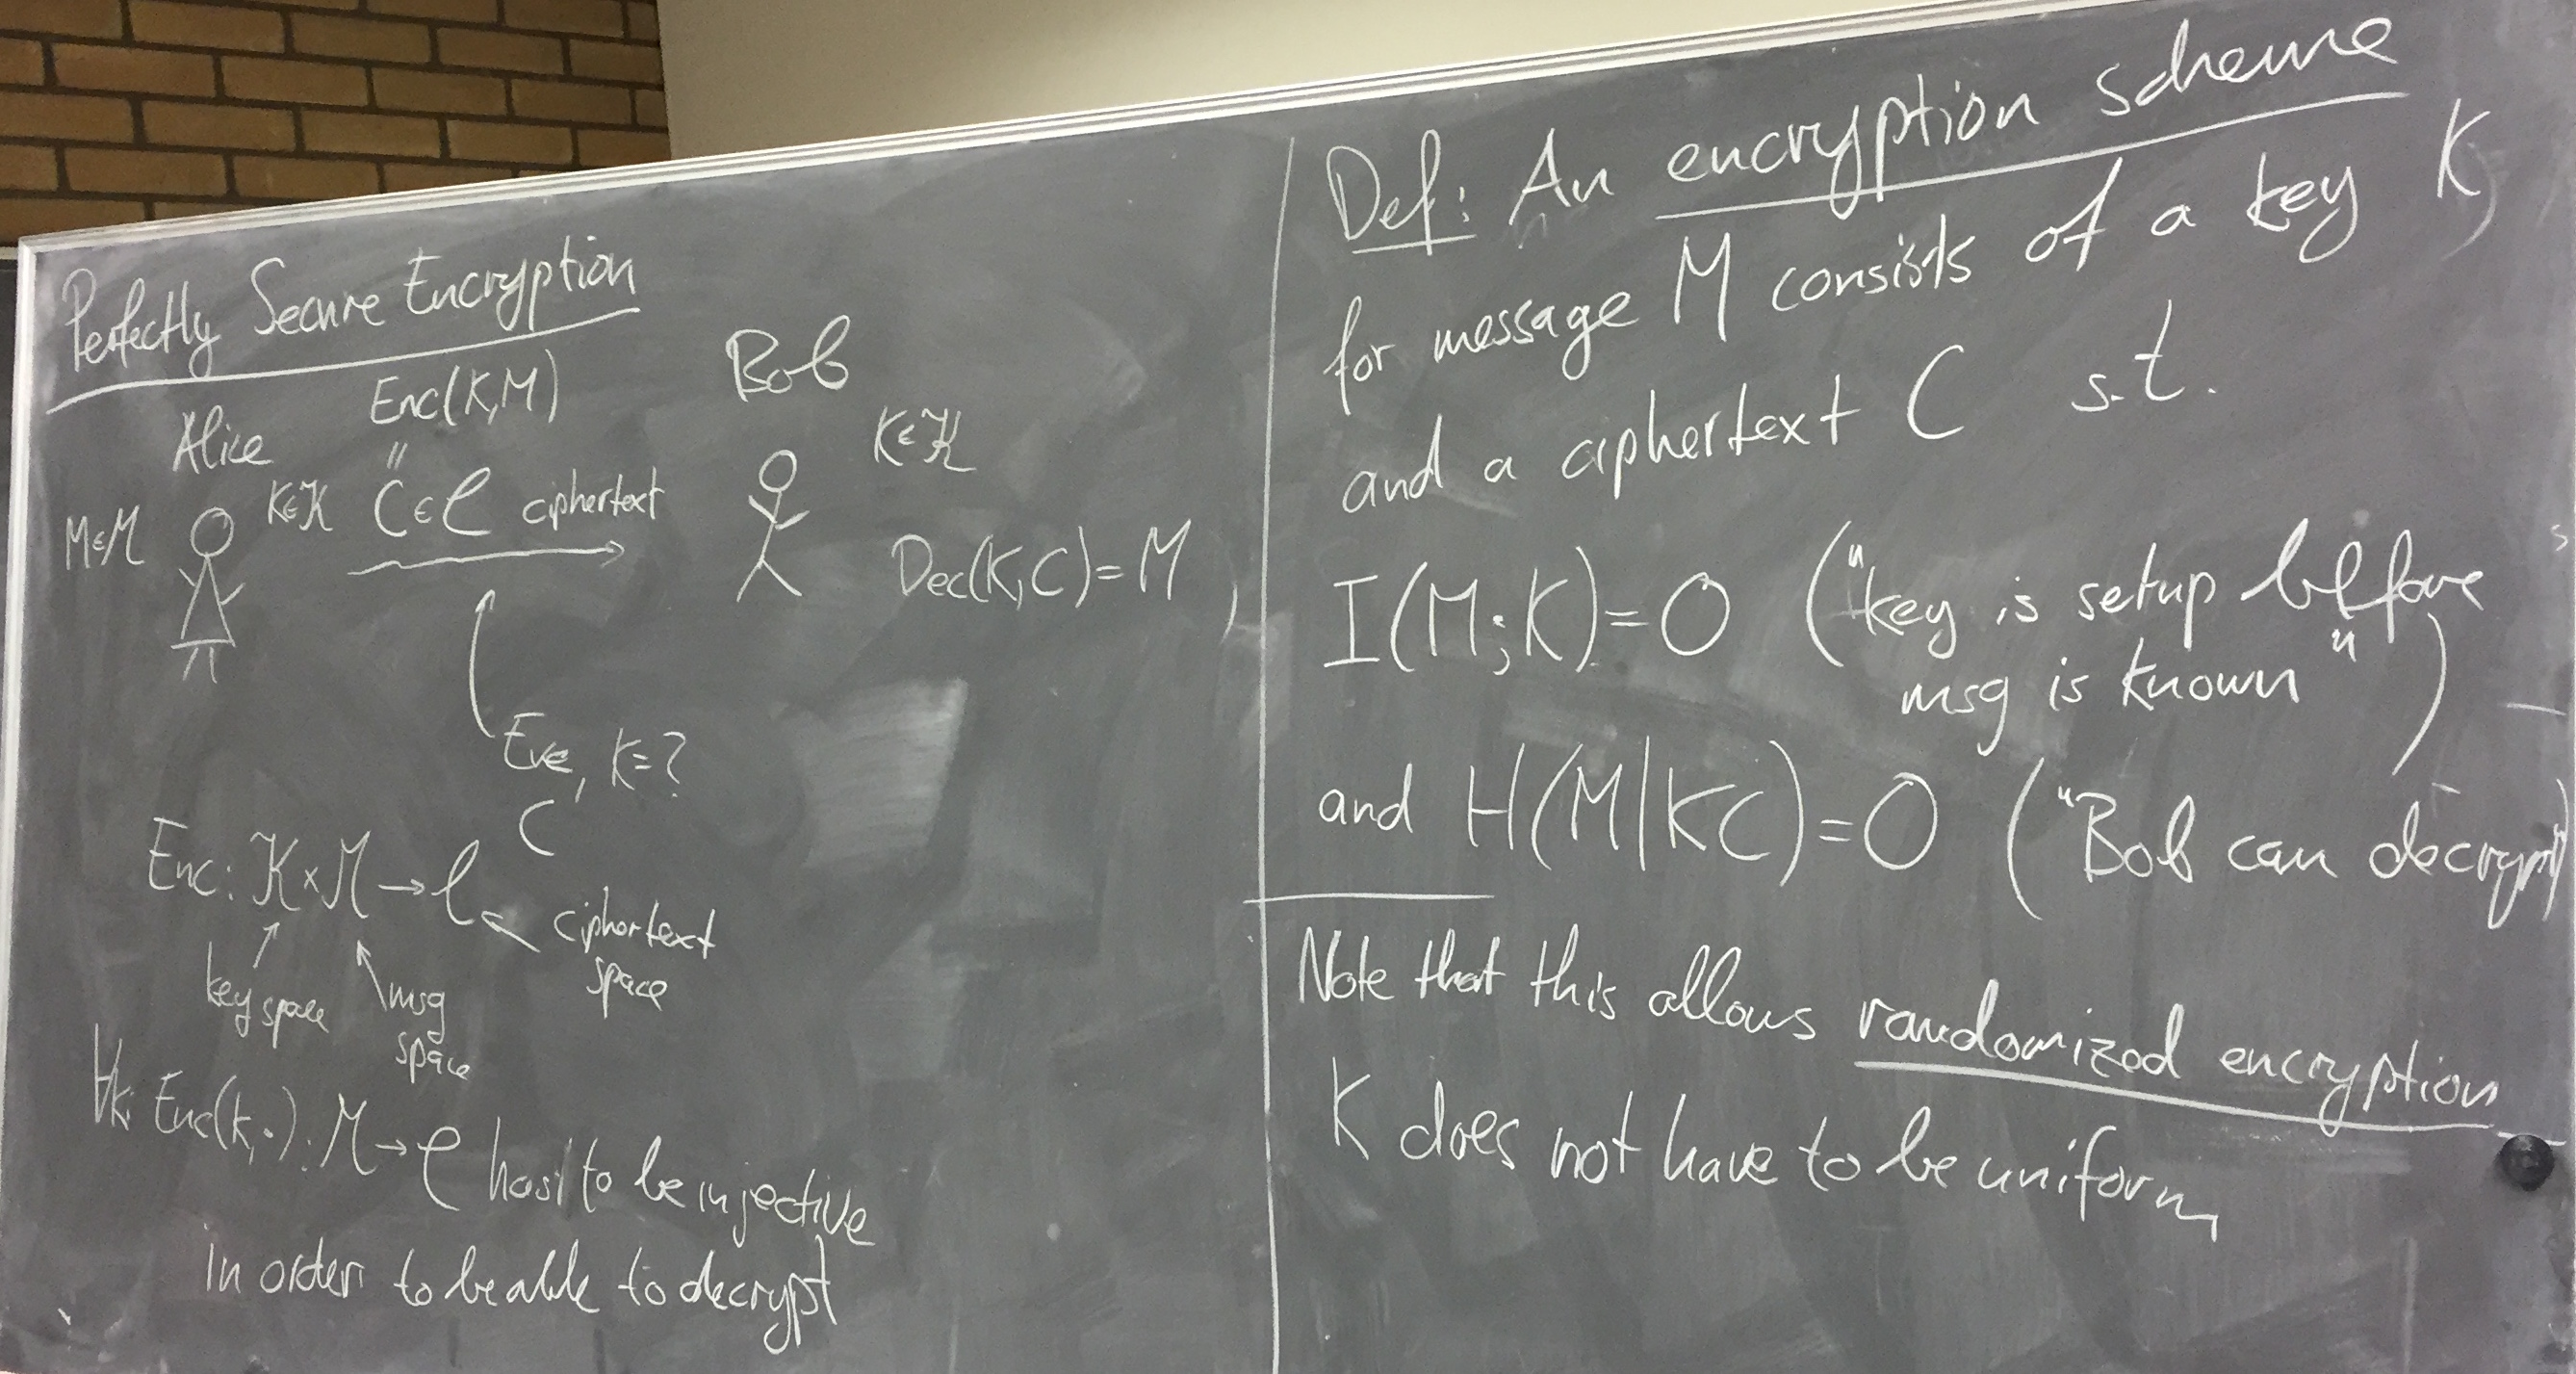 Perfectly Secure Encryption
Enc(K,M)
Bob
Alice
"
K∈𝒦
M∈ℳ
K∈𝒦
C∈𝒞 ciphertext
Dec(K,C)=M
Eve, K=?
C
Enc: 𝒦×ℳ→𝒞
ciphertext
space
key space
msg
space
∀k: Enc(k,·): ℳ→𝒞 has to be injective
in order to be able to decrypt
Def: An encryption scheme
for message M consists of a key K
and a ciphertext C s.t.
I(M;K)=0 ("key is setup before
msg is known")
and H(M|KC)=0 ("Bob can decrypt")
Note that this allows randomized encryption
K does not have to be uniform